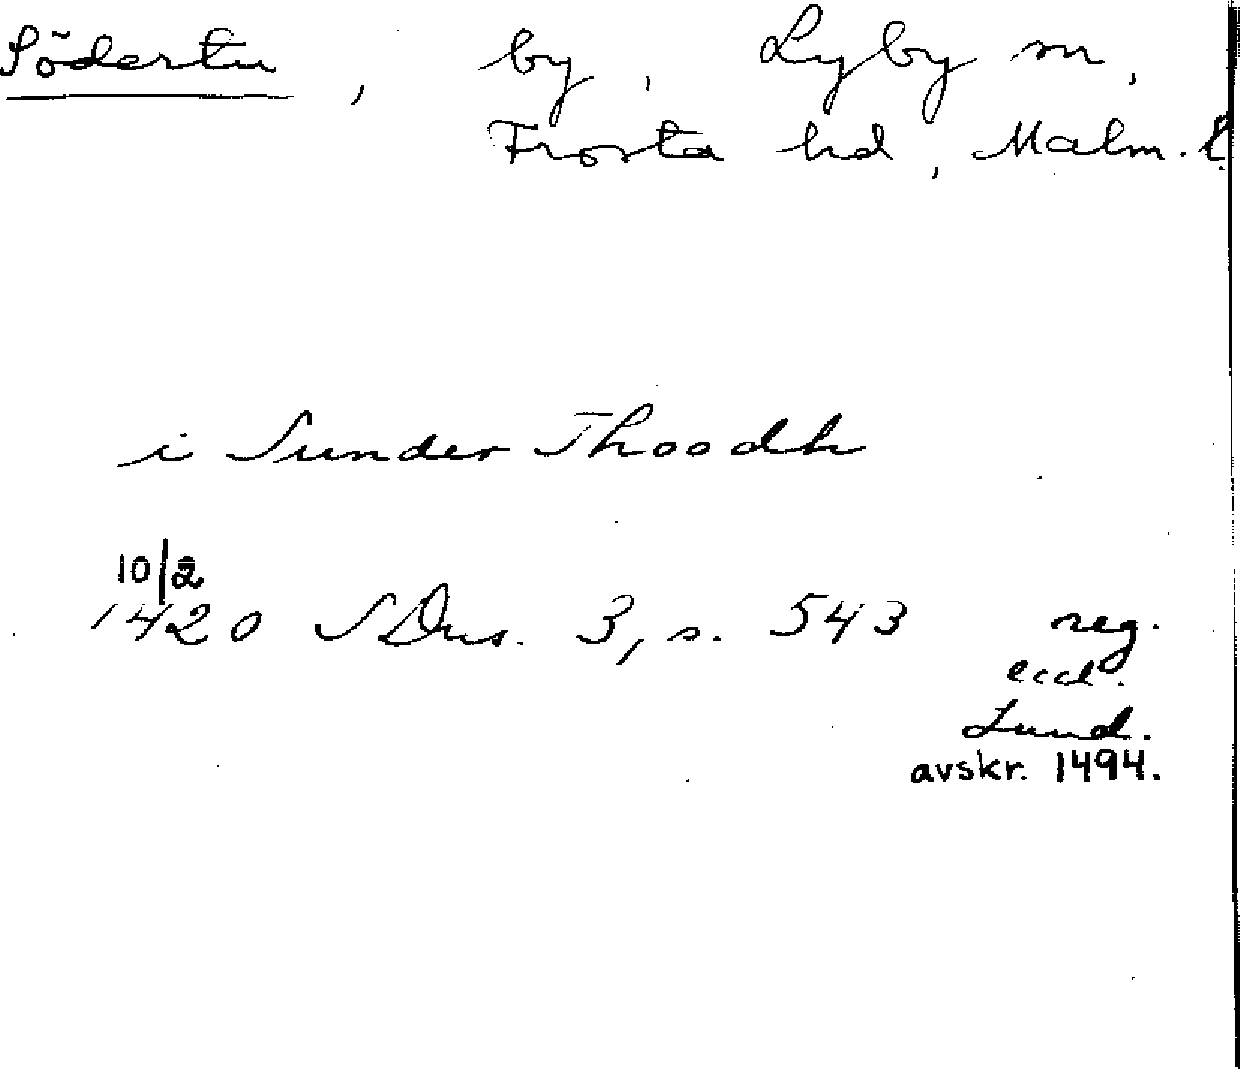 Södertu, by, Lyby sn,
Frosta hd, Malm. l.
i Sunder Thoodh
10/2
1420 SDns. 3, s. 543 reg.
eccl.
Lund.
avskr. 1494.